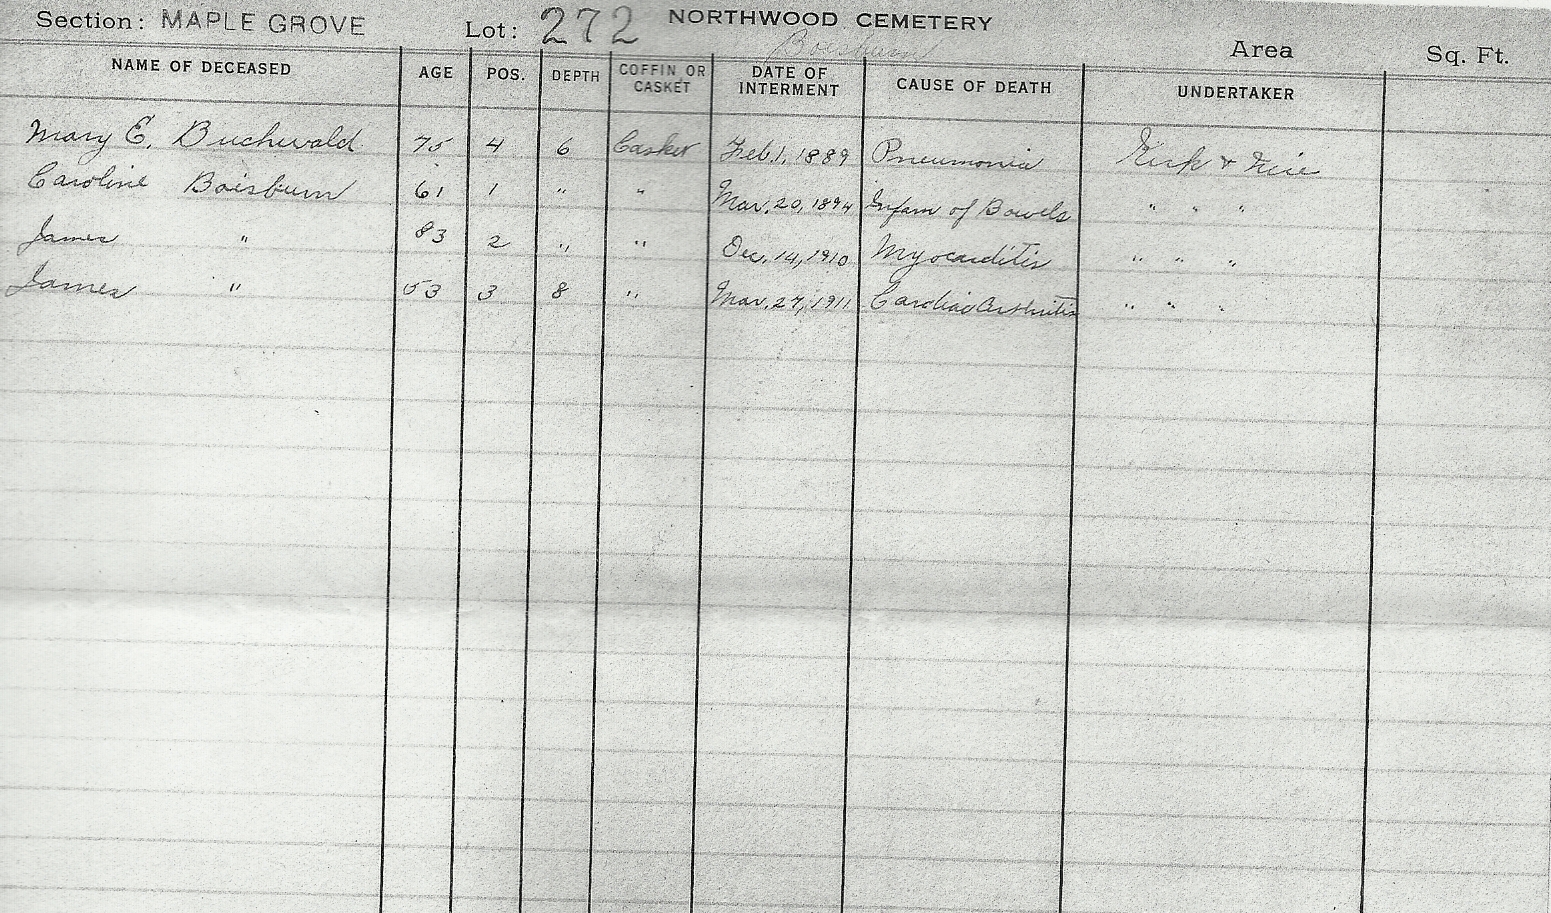 Section: MAPLE GROVE Lot: 272 NORTHWOOD CEMETERY Area Sq. Ft.
Boisburn
NAME OF DECEASED AGE POS. DEPTH COFFIN OR CASKET DATE OF INTERMENT CAUSE OF DEATH UNDERTAKER
Mary E. Buchwald 75 4 6 Casket Feb. 1, 1889 Pneumonia Kirk & Nice
Caroline Boisburn 61 1 " " Mar. 20, 1894 Infam of Bowels " " "
James " 83 2 " " Dec. 14, 1910 Myocarditis " " "
James " 53 3 8 " Mar. 27, 1911 Cardiac Arthritis " " "